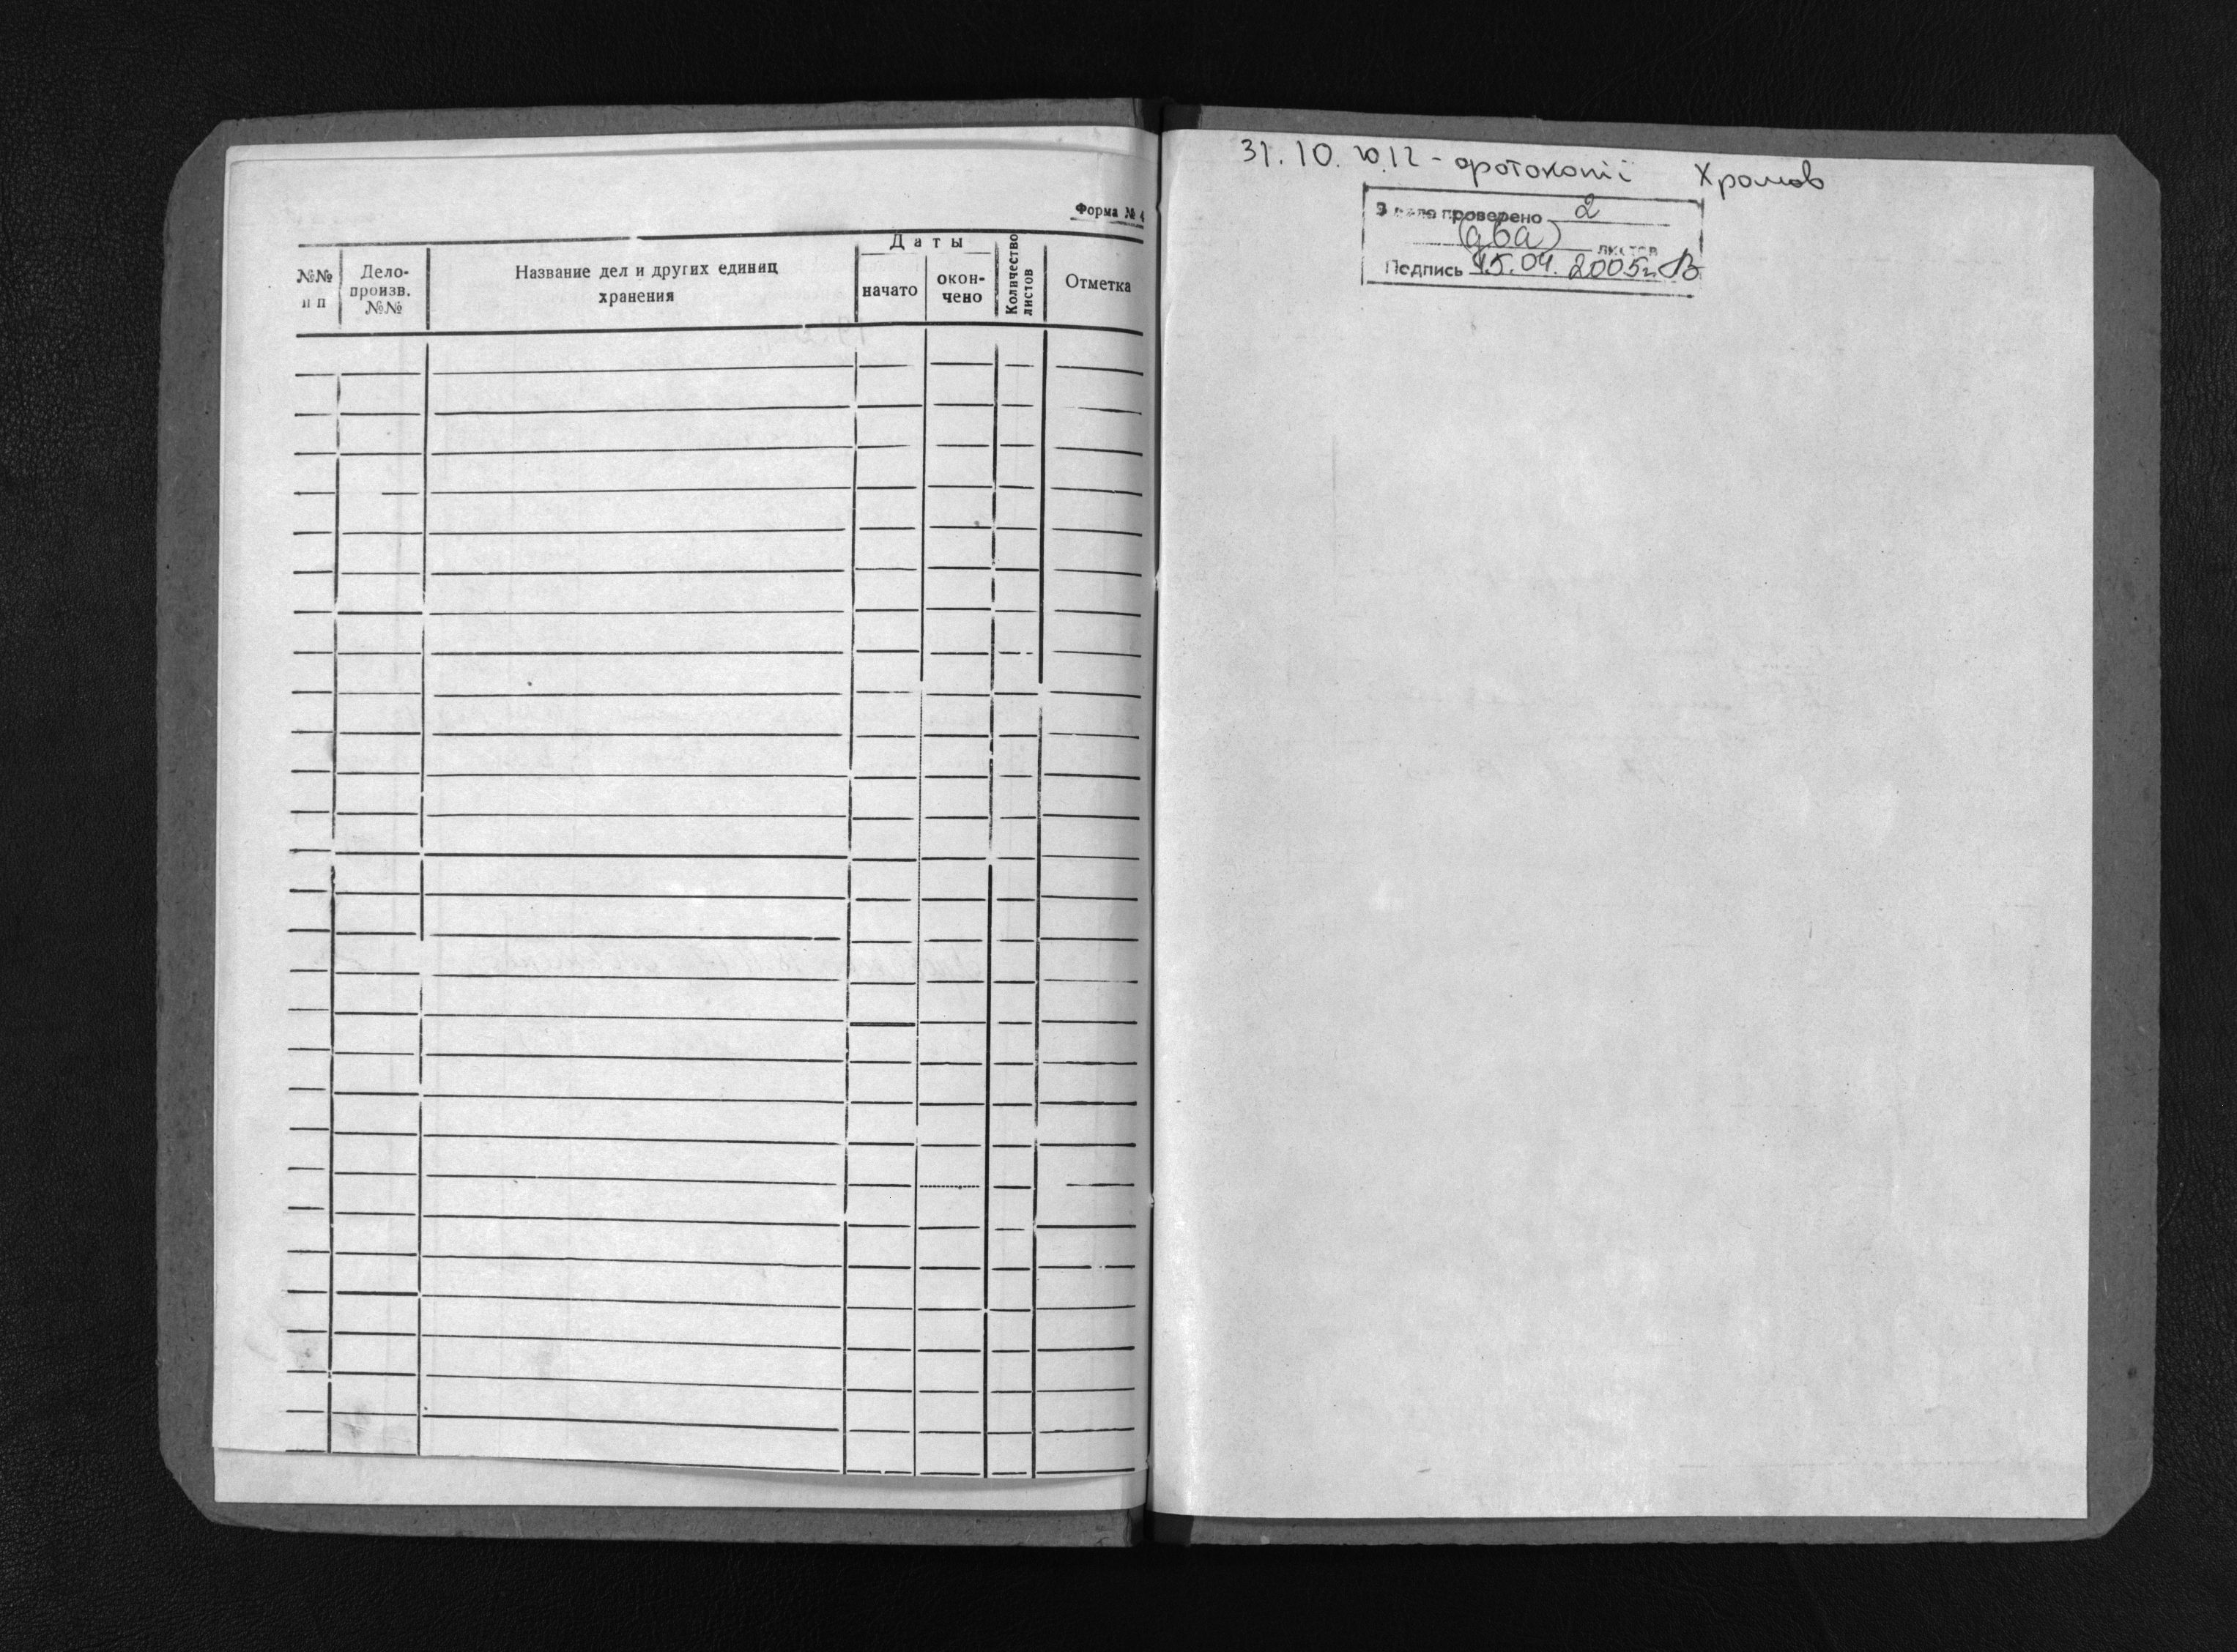 Форма № 4
№№
п п
Дело-
произв.
№№
Название дел и других единиц
хранения
Даты
начато
окон-
чено
Количество
листов
Отметка
31.10.2012 - фотокопії Храмов
В деле проверено 2
(два) листов
Подпись 15.04.2005г.